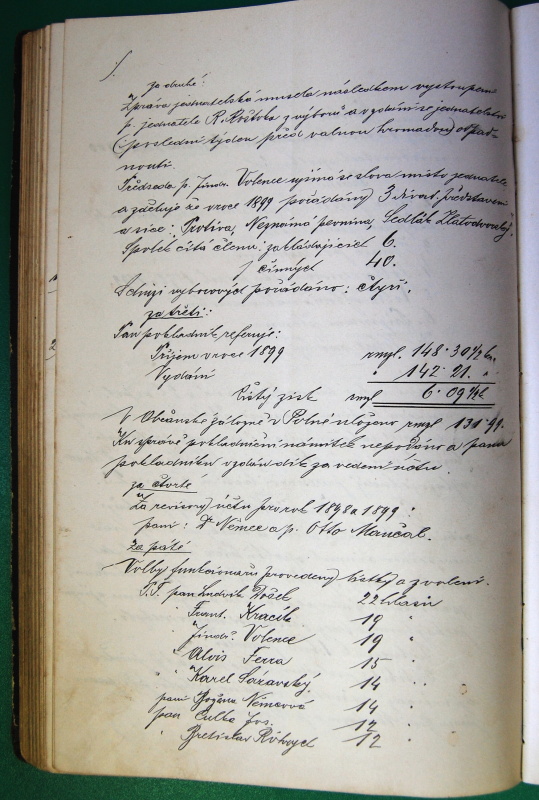 za druhé:
Zpráva jednatelská musela následkem vystoupení
p. jednatele R. z výboru a vzdání se jednatelství
(poslední týden před valnou hromadou) odpad-
nouti.
Předseda p. Jindř. Volenec ujímá se slova místo jednatele
a sděluje že v roce 1899 pořádány 3 divad. představení
a sice: Protiva, Neznámá pevnina, Sedlák Zlatodvorský.
Spolek čítá členů: zakládajících 6.
činných 40.
Schůzí výborových pořádáno: čtyři.
za třetí:
Pan pokladník referuje:
Příjem v roce 1899 rmyl. 148·30½ kr.
Vydání " 142·21. "
Čistý zisk rmyl 6·09½
V Občanské záložně v Polné uloženo rmyl 131·99.
Ku zprávě pokladniční námitek nepodáno a panu
pokladníku vzdán dík za vedení účtů.
za čtvrté
Za revisory účtů pro rok 1898 a 1899:
pani: Dr Němec a p. Otto Maučal.
Za páté
Volby funkcionářů provedeny lístky a zvoleni:
P.T. pan Ludvík 22 hlasů
" Ferd. Kracík 19 "
" Jindř. Volenec 19 "
" Alois Ferra 15 "
" Karel Sázavský 14 "
paní Božena Němcová 14 "
pan Culka Jos. 12 "
" Břetislav 12 "